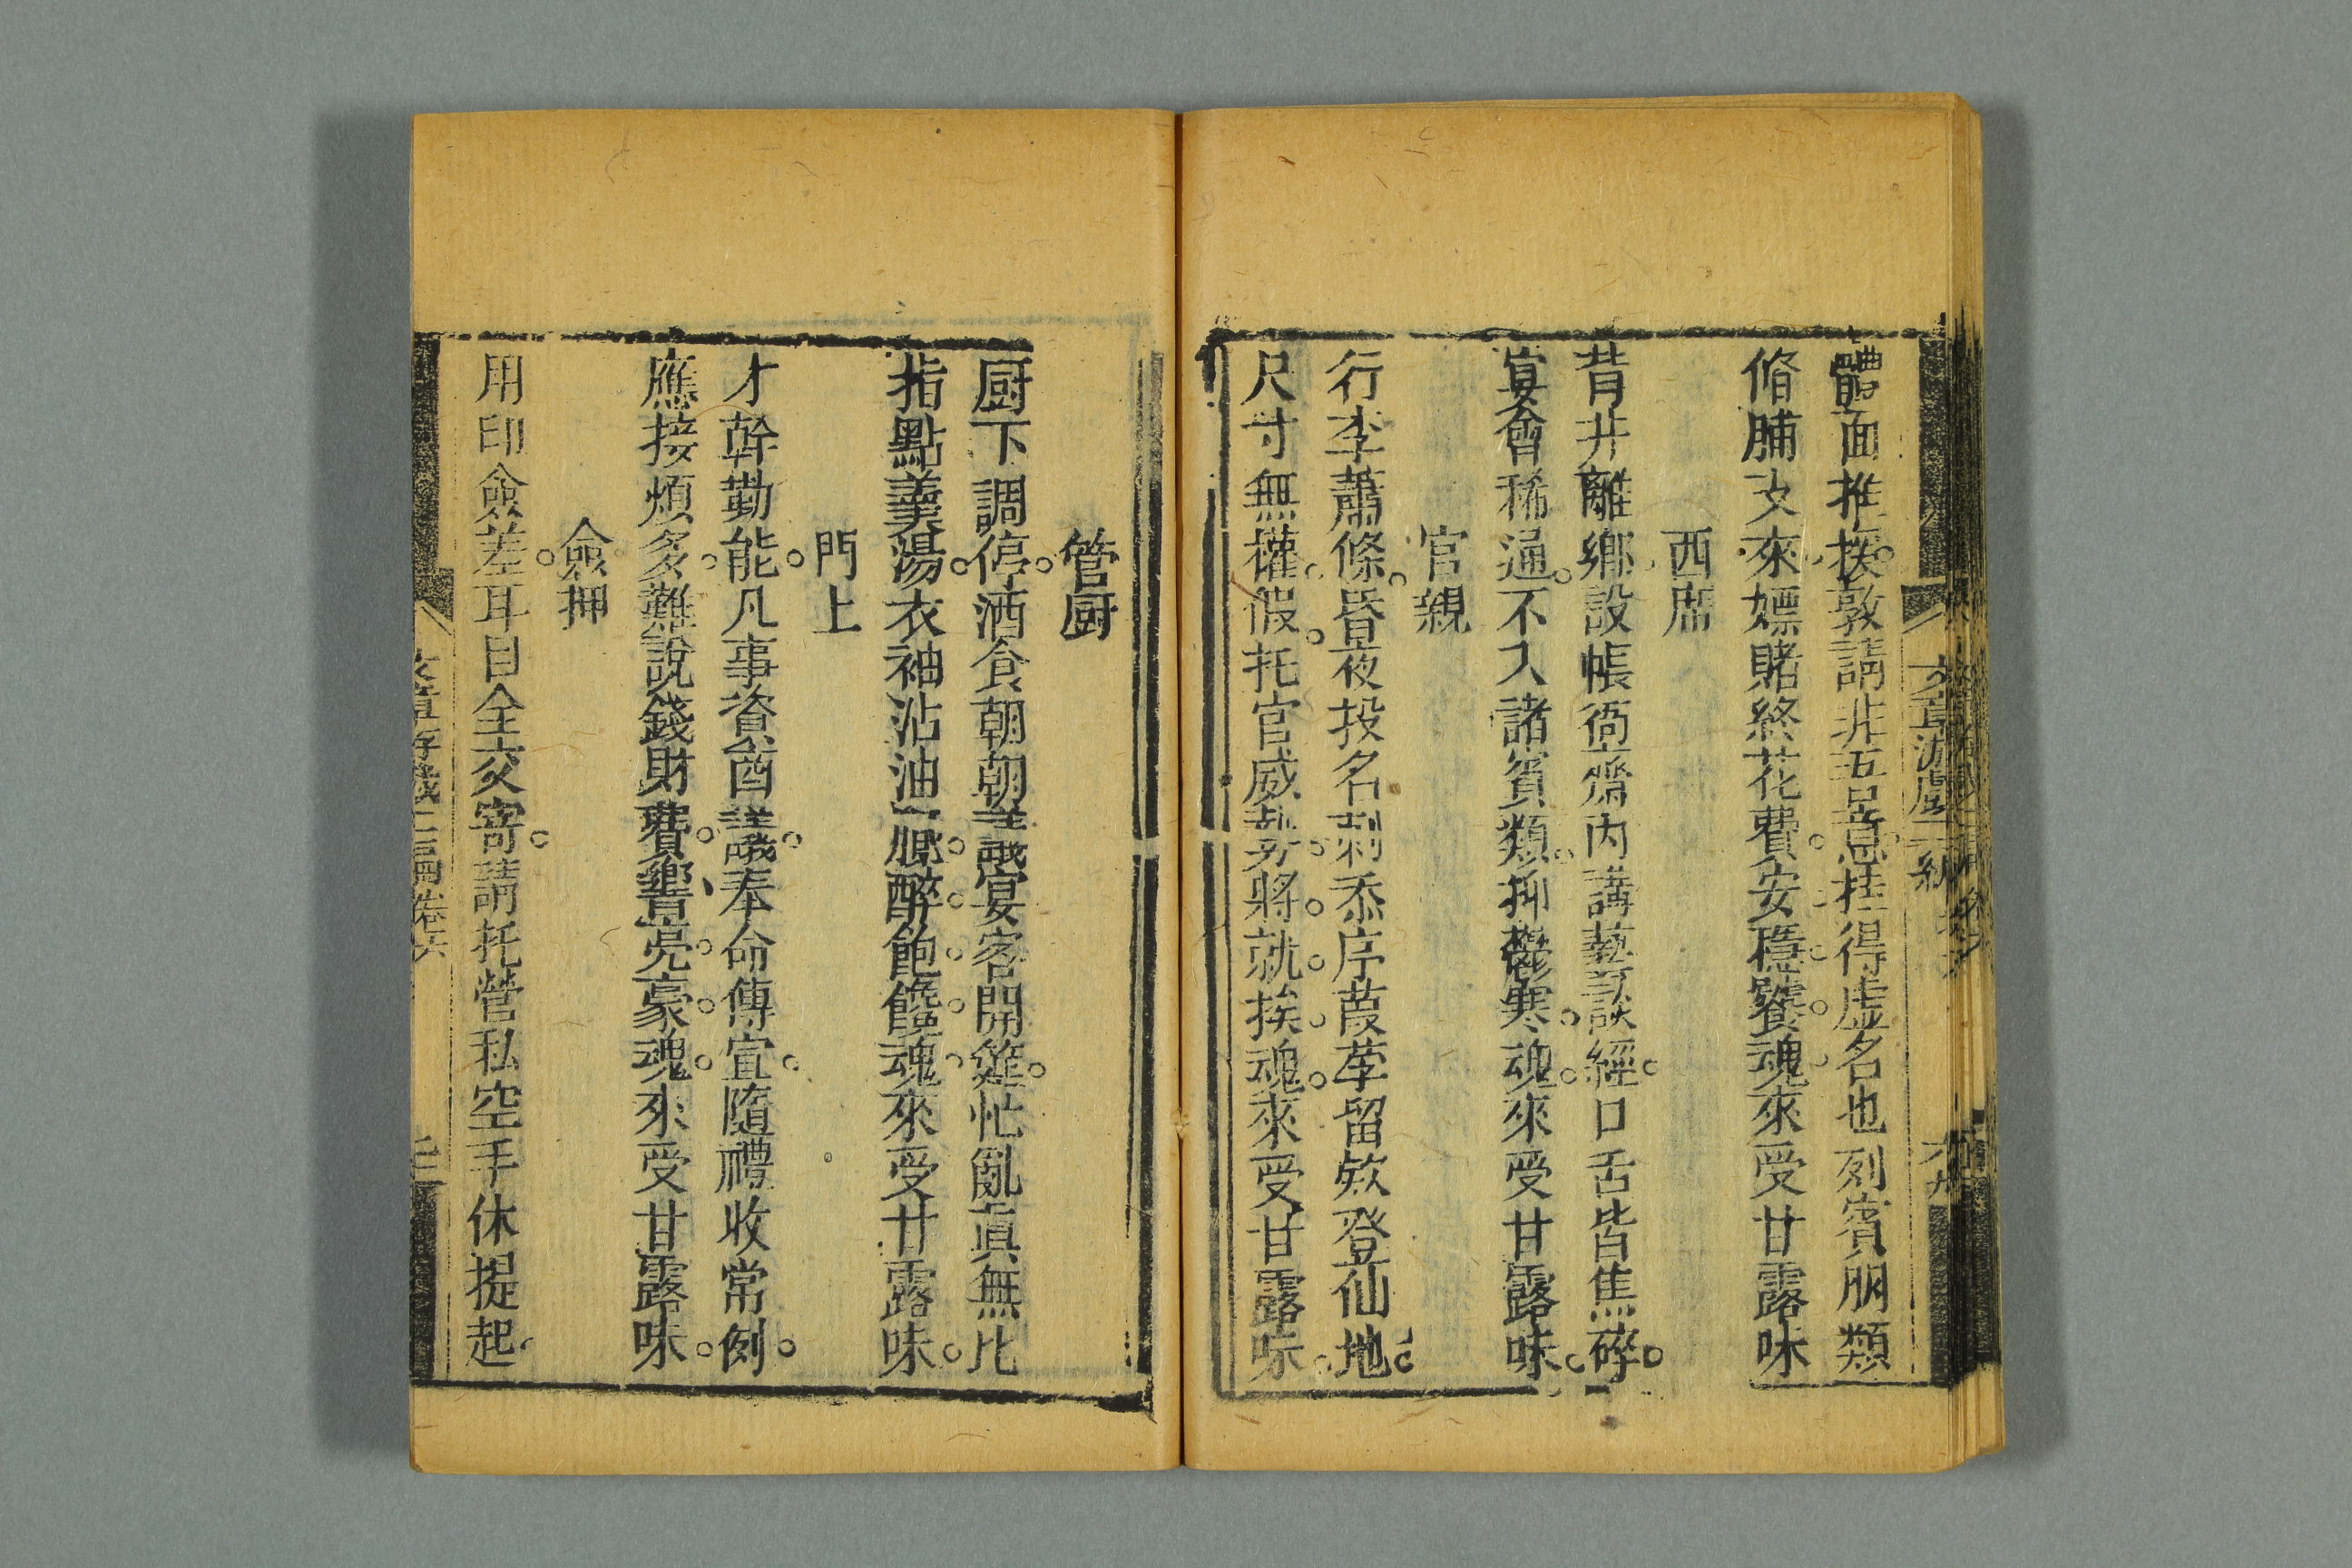 體面推挨敦請非吾意挂得虛名也列賓朋類
脩脯攴來嫖賭終花費安穩饕魂來受甘露味
西席
背井離鄉設帳衙齋內講藝談經口舌皆焦碎
宴會稀通不入諸賓類抑鬱寒魂來受甘露味
官親
行李蕭條昏夜投名刺忝序葭莩留欵登仙地
尺寸無權假托官威勢將就挨魂來受甘露味
管厨
厨下調停酒食朝朝議宴客開筵忙亂眞無比
指點羹湯衣袖沾油膩醉飽饞魂來受甘露味
門上
才幹勤能凡事資酋議奉命傳宣隨禮收常例
應接煩多難說錢財費響亮豪魂來受甘露味
僉押
用印僉差耳目全交寄請托營私空手休提起
文章游戲二編卷六